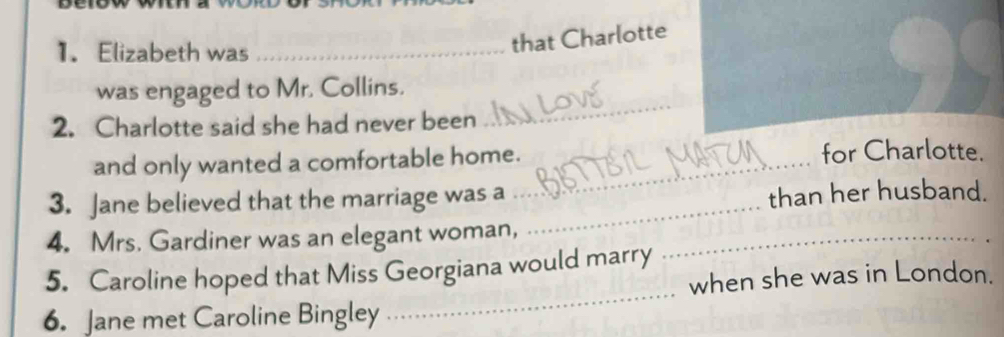 1. Elizabeth was ........ that Charlotte
was engaged to Mr. Collins.
2. Charlotte said she had never been IN LOVE
and only wanted a comfortable home.
3. Jane believed that the marriage was a BETTER MATCH for Charlotte.
4. Mrs. Gardiner was an elegant woman, ........ than her husband.
5. Caroline hoped that Miss Georgiana would marry ........ .
6. Jane met Caroline Bingley ........ when she was in London.